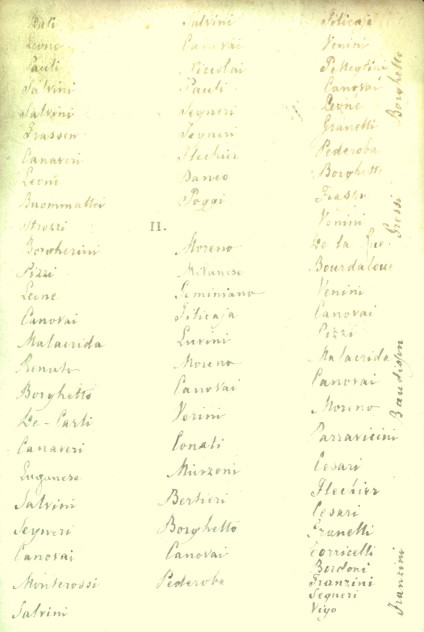 Leone
Pauli
Salvini
Salvini
Canaveri
Leoni
Buommattei
Strozzi
Borgherini
Pizzi
Leone
Canovai
Malacrida
Renati
Borghetto
De-Carli
Canaveri
Luganese
Salvini
Segneri
Canovai
Monterossi
Salvini
Salvini
Canovai
Niccolai
Pauli
Segneri
Segneri
Flechier
Daneo
Poggi
II.
Moreno
Milanese
Geminiano
Filicaja
Lurini
Moreno
Canovai
Verini
Conati
Murzoni
Bertieri
Borghetto
Canovai
Pederoba
Filicaja
Venini
Pellegrini
Canovai
Leone
Granelli
Pederoba
Borghetto
Venini
De la Rue
Bourdaloue
Venini
Canovai
Pizzi
Malacrida
Canovai
Moreno
Parravicini
Cesari
Flechier
Cesari
Granelli
Torricelli
Bordoni
Franzini
Segneri
Vigo
Borghetto
Grossi
Baudisson
Franzini